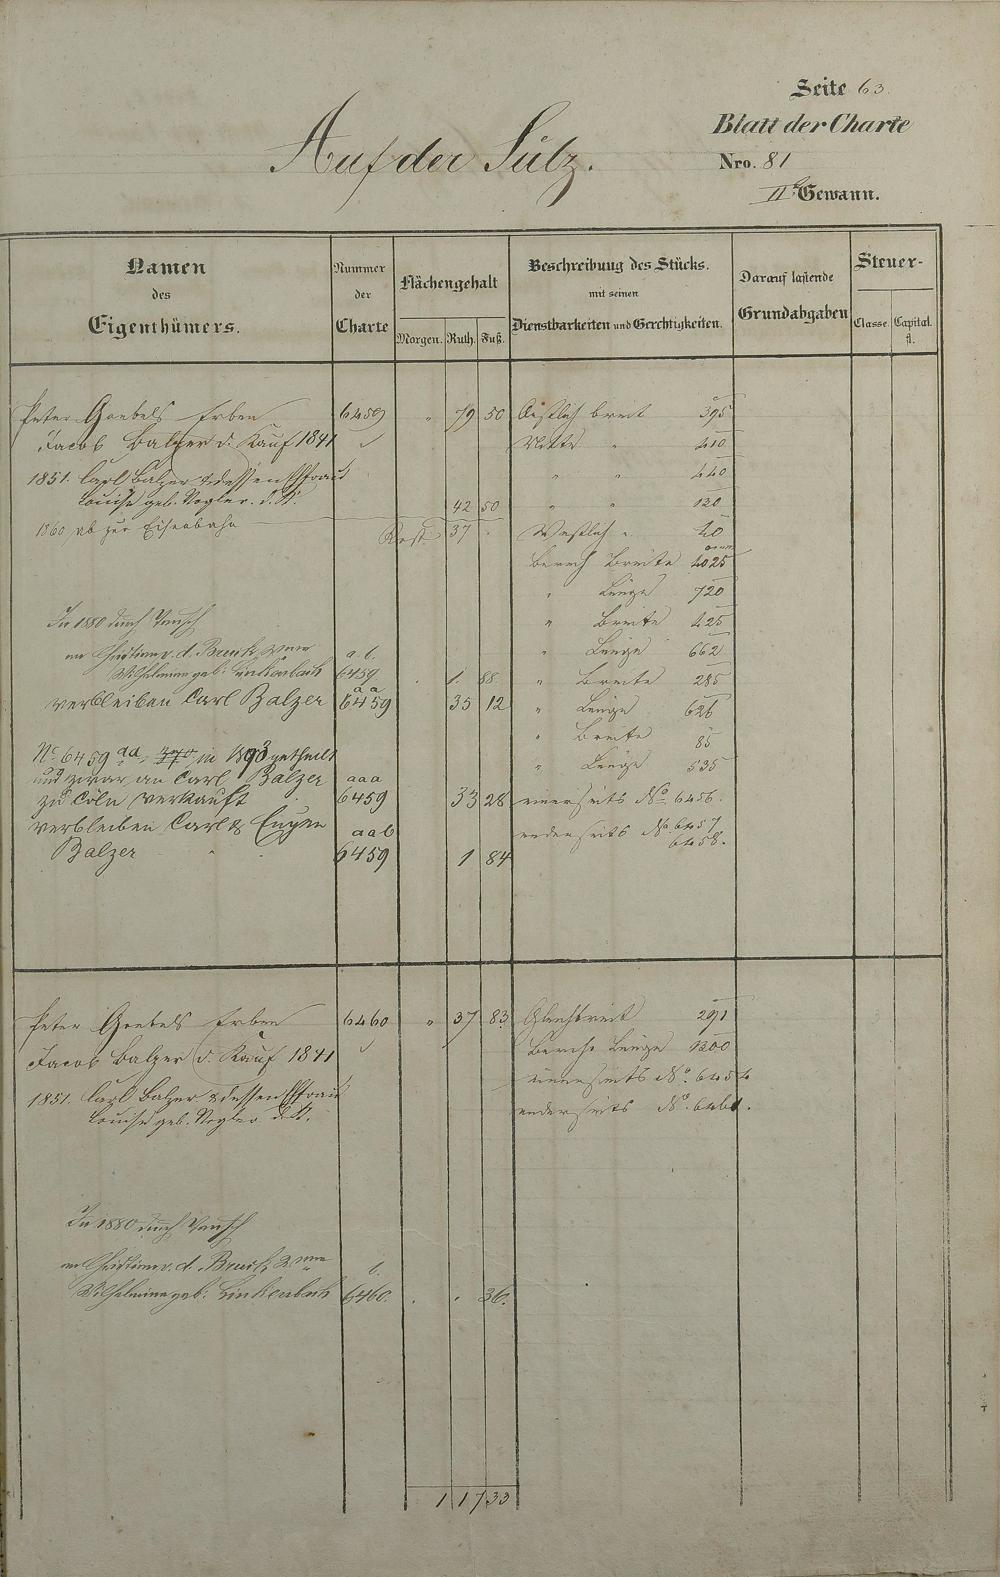 Seite 63.
Blatt der Charte
Auf der Sülz.
Nro. 81
IIte Gewann.
Namen des Eigenthümers.
Nummer der Charte
Flächengehalt
Morgen. Ruth. Fuß.
Beschreibung des Stücks. mit seinen Dienstbarkeiten und Gerechtigkeiten.
Darauf lastende Grundabgaben
Steuer-
Classe. Capital. fl.
Peter Goebels Erben 6459 " 79 50 Oestlich breit 395
Jacob Balzer d. Kauf 1841 Mitte " 410
1851. Carl Balzer & dessen Ehefrau " " 440
Louise geb. 42 50 " " 120
1860 ab zur Eisenbahn Rest 37 . Westlich " 40
Berech Breite 4025
" Länge 720
In 1880 durch Tausch " Breite 425
an Christian v. d. Bruck a. b. " Länge 662
Wilhelmina geb: Linkenbach 6459 . 1. 88 " Breite 285
verbleiben Carl Balzer a a 6459 35 12 " Länge 626
" Breite 85
No 6459 aa, in 1893 getheilt " Länge 535
und zwar an Carl Balzer aaa
zu Cöln verkauft 6459 33 28 einerseits No. 6456.
verbleiben Carl & Eugen aab anderseits No. 6457
6458.
Balzer 6459 1 84
Peter Goebels Erben 6460 " 37 83 Gleichbreit 291
Jacob Balzer d. Kauf 1841 Berech. Länge 1300
einerseits No. 6454
1851. Carl Balzer & dessen Ehefrau anderseits No. 6461.
Louise geb.
In 1880 durch Tausch
an Christian v. d. Bruck b.
Wilhelmina geb: Linkenbach 6460. . . 36.
1 17 33